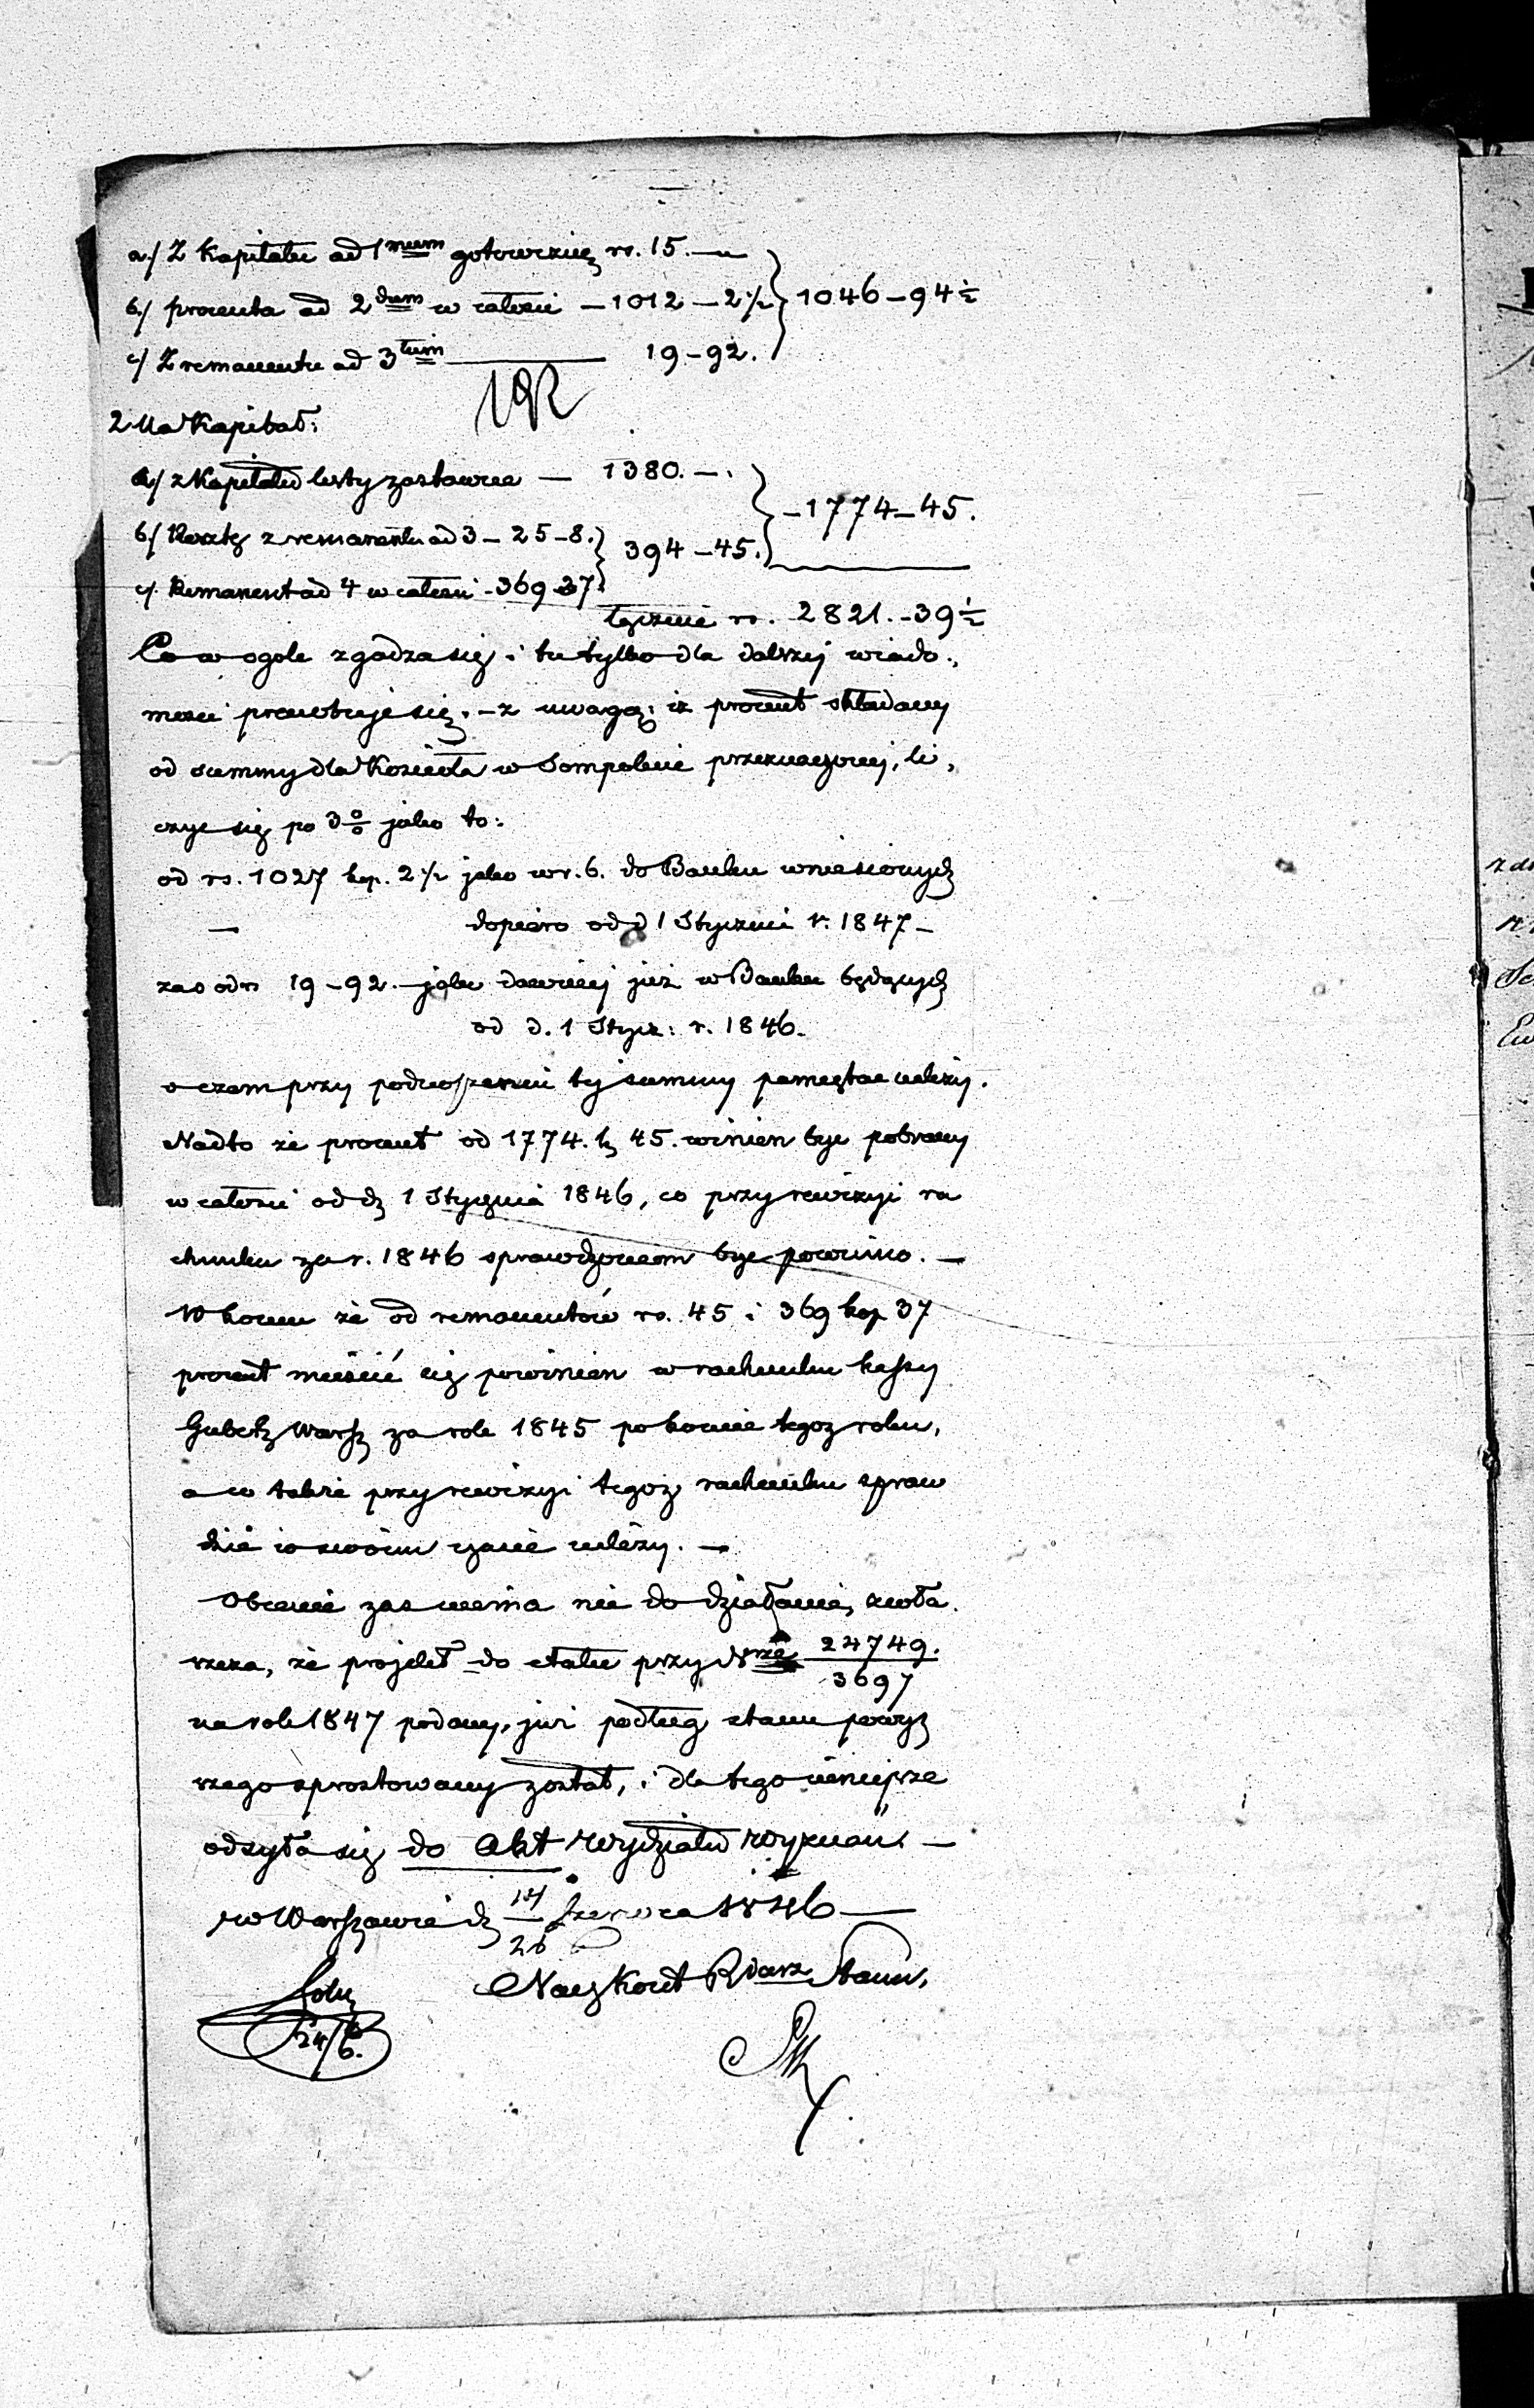 a./ Z Kapitału ad 1mum gotowizną rs. 15. — „
b./ procenta ad 2dum w całości — 1012 — 2½ } 1046 — 94½
c/ Z remanentu ad 3tium — 19 — 92.
2. Na Kapitał:
a./ z Kapitału listy zastawne — 1380. — .
— 1774 — 45.
b./ Resztę z remanentu ad 3 — 25 — 8. } 394 — 45.
c/. Remanent ad 4 w całości - 369 37
łącznie rs. 2821. - 39½
Co w ogole zgadza się i tu tylko dla dalszej wiado.,
mosci prenotuje się. — z uwagą: iż procent składany
od summy dla Kościoła w Sompolnie przeznaczonej, li,
czyc się po 3 % jako to:
od rs. 1027 kop. 2½ jako w r. b. do Banku wniesionych
— dopiero od d 1 Stycznia r. 1847 —
zas od rs 19 — 92. — jako dawniej już w Banku będących
od d. 1 Stycz: r. 1846.
o czem przy podnoszeniu tej summy pamiętac należy.
Nadto że procent od 1774. k 45. winien byc pobrany
w całości od d 1 Stycznia 1846, co przy rewizyi ra
chunku za r. 1846 sprawdzonem byc powinno. —
W koncu że od remanentów rs. 45 i 369 kop 37
procent mieścić się powinien w rachunku kassy
Guber Warsz za rok 1845 po koniec tegoz roku,
a co także przy rewizyi tegoz rachunku spraw
dzić w swoim czasie należy. —
Obecnie zas niema nic do działania, zwła.
szcza, że projekt do etatu przy Nrze 24749.
3697
na rok 1847 podany, juz podług stanu powyż
szego sprostowany został, i dla tego niniejsze
odsyła się do Akt Wydziału Wyznań. —
w Warszawie d 14/26 Czerwca 1846 —
Nacz Kont R Stanu,
24/6.